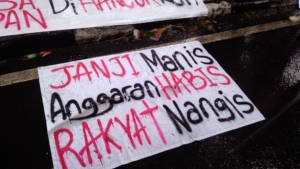 PAN DIHANCURKAN
JANJI Manis
Anggaran HABIS
RAKYAT Nangis